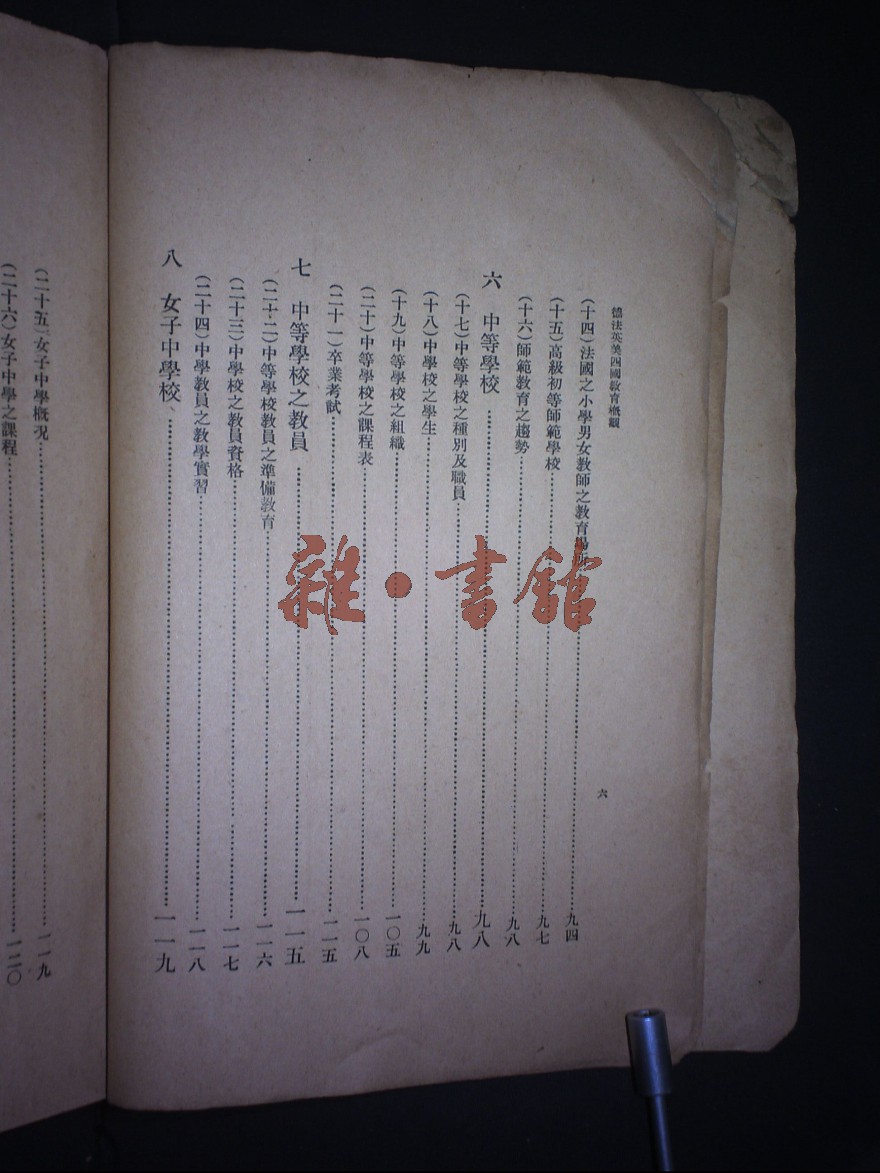 德法英美四國敎育槪觀
六
(十四)法國之小學男女敎師之敎育場所……九四
(十五)高級初等師範學校……九七
(十六)師範敎育之趨勢……九八
六 中等學校……九八
(十七)中等學校之種別及職員……九八
(十八)中學校之學生……九九
(十九)中等學校之組織……一〇五
(二十)中等學校之課程表……一〇八
(二十一)卒業考試……一一五
七 中等學校之敎員……一一五
(二十二)中等學校敎員之準備敎育……一一六
(二十三)中學校之敎員資格……一一七
(二十四)中學敎員之敎學實習……一一八
八 女子中學校……一一九
(二十五)女子中學槪况……一一九
(二十六)女子中學之課程……一二〇
雜·書館